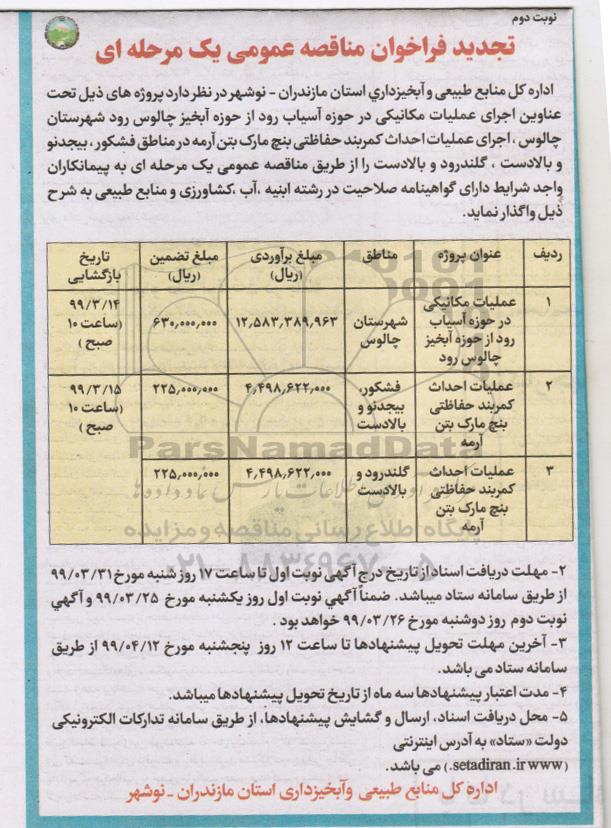 نوبت دوم
تجدید فراخوان مناقصه عمومی یک مرحله ای
اداره کل منابع طبیعی و آبخیزداري استان مازندران - نوشهر در نظر دارد پروژه های ذیل تحت
عناوین اجرای عملیات مکانیکی در حوزه آسیاب رود از حوزه آبخیز چالوس رود شهرستان
چالوس ، اجرای عملیات احداث کمربند حفاظتی بنچ مارک بتن آرمه در مناطق فشکور، بیجدنو
و بالادست ، گلندرود و بالادست را از طریق مناقصه عمومی یک مرحله ای به پیمانکاران
واجد شرایط دارای گواهینامه صلاحیت در رشته ابنیه ،آب ،کشاورزی و منابع طبیعی به شرح
ذیل واگذار نماید.
ردیف عنوان پروژه مناطق مبلغ برآوردی (ریال) مبلغ تضمین (ریال) تاریخ بازگشایی
۱ عملیات مکانیکی در حوزه آسیاب رود از حوزه آبخیز چالوس رود شهرستان چالوس ۱۲,۵۸۳,۳۸۹,۹۶۳ ۶۳۰,۰۰۰,۰۰۰ ۹۹/۳/۱۴ (ساعت ۱۰ صبح )
۲ عملیات احداث کمربند حفاظتی بنچ مارک بتن آرمه فشکور، بیجدنو و بالادست ۴,۴۹۸,۶۲۲,۰۰۰ ۲۲۵,۰۰۰,۰۰۰ ۹۹/۳/۱۵ (ساعت ۱۰ صبح )
۳ عملیات احداث کمربند حفاظتی بنچ مارک بتن آرمه گلندرود و بالادست ۴,۴۹۸,۶۲۲,۰۰۰ ۲۲۵,۰۰۰,۰۰۰
ParsNamadData
پایگاه اطلاع رسانی مناقصه و مزایده
۰۲۱-۸۸۳۴۹۶۷۰-۵
۲- مهلت دریافت اسناد از تاریخ درج آگهی نوبت اول تا ساعت ۱۷ روز شنبه مورخ ۹۹/۰۳/۳۱
از طریق سامانه ستاد میباشد. ضمناً آگهي نوبت اول روز یکشنبه مورخ ۹۹/۰۳/۲۵ و آگهي
نوبت دوم روز دوشنبه مورخ ۹۹/۰۳/۲۶ خواهد بود .
۳- آخرین مهلت تحویل پیشنهادها تا ساعت ۱۲ روز پنجشنبه مورخ ۹۹/۰۴/۱۲ از طریق
سامانه ستاد می باشد.
۴- مدت اعتبار پیشنهادها سه ماه از تاریخ تحویل پیشنهادها میباشد.
۵- محل دریافت اسناد، ارسال و گشایش پیشنهادها، از طریق سامانه تدارکات الکترونیکی
دولت «ستاد» به آدرس اینترنتی
(setadiran.ir www.) می باشد.
اداره کل منابع طبیعی وآبخیزداری استان مازندران ـ نوشهر